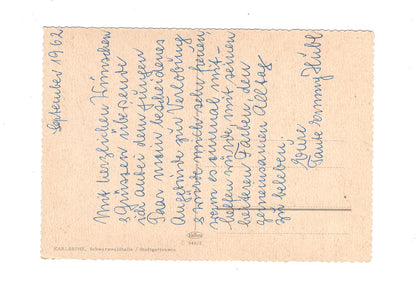 September 1962
Mit herzlichen Wünschen
& Grüssen übersende
ich anbei dem jungen
Paar mein bescheidenes
Angebinde zur Verlobung
& würde mich sehr freuen
wenn es einmal mit-
helfen würde mit seinen
heiteren Farben, den
gemeinsamen Alltag
zu beleben.
Eure
Tante Emmy Hübl
KARLSRUHE, Schwarzwaldhalle / Stadtgartensee